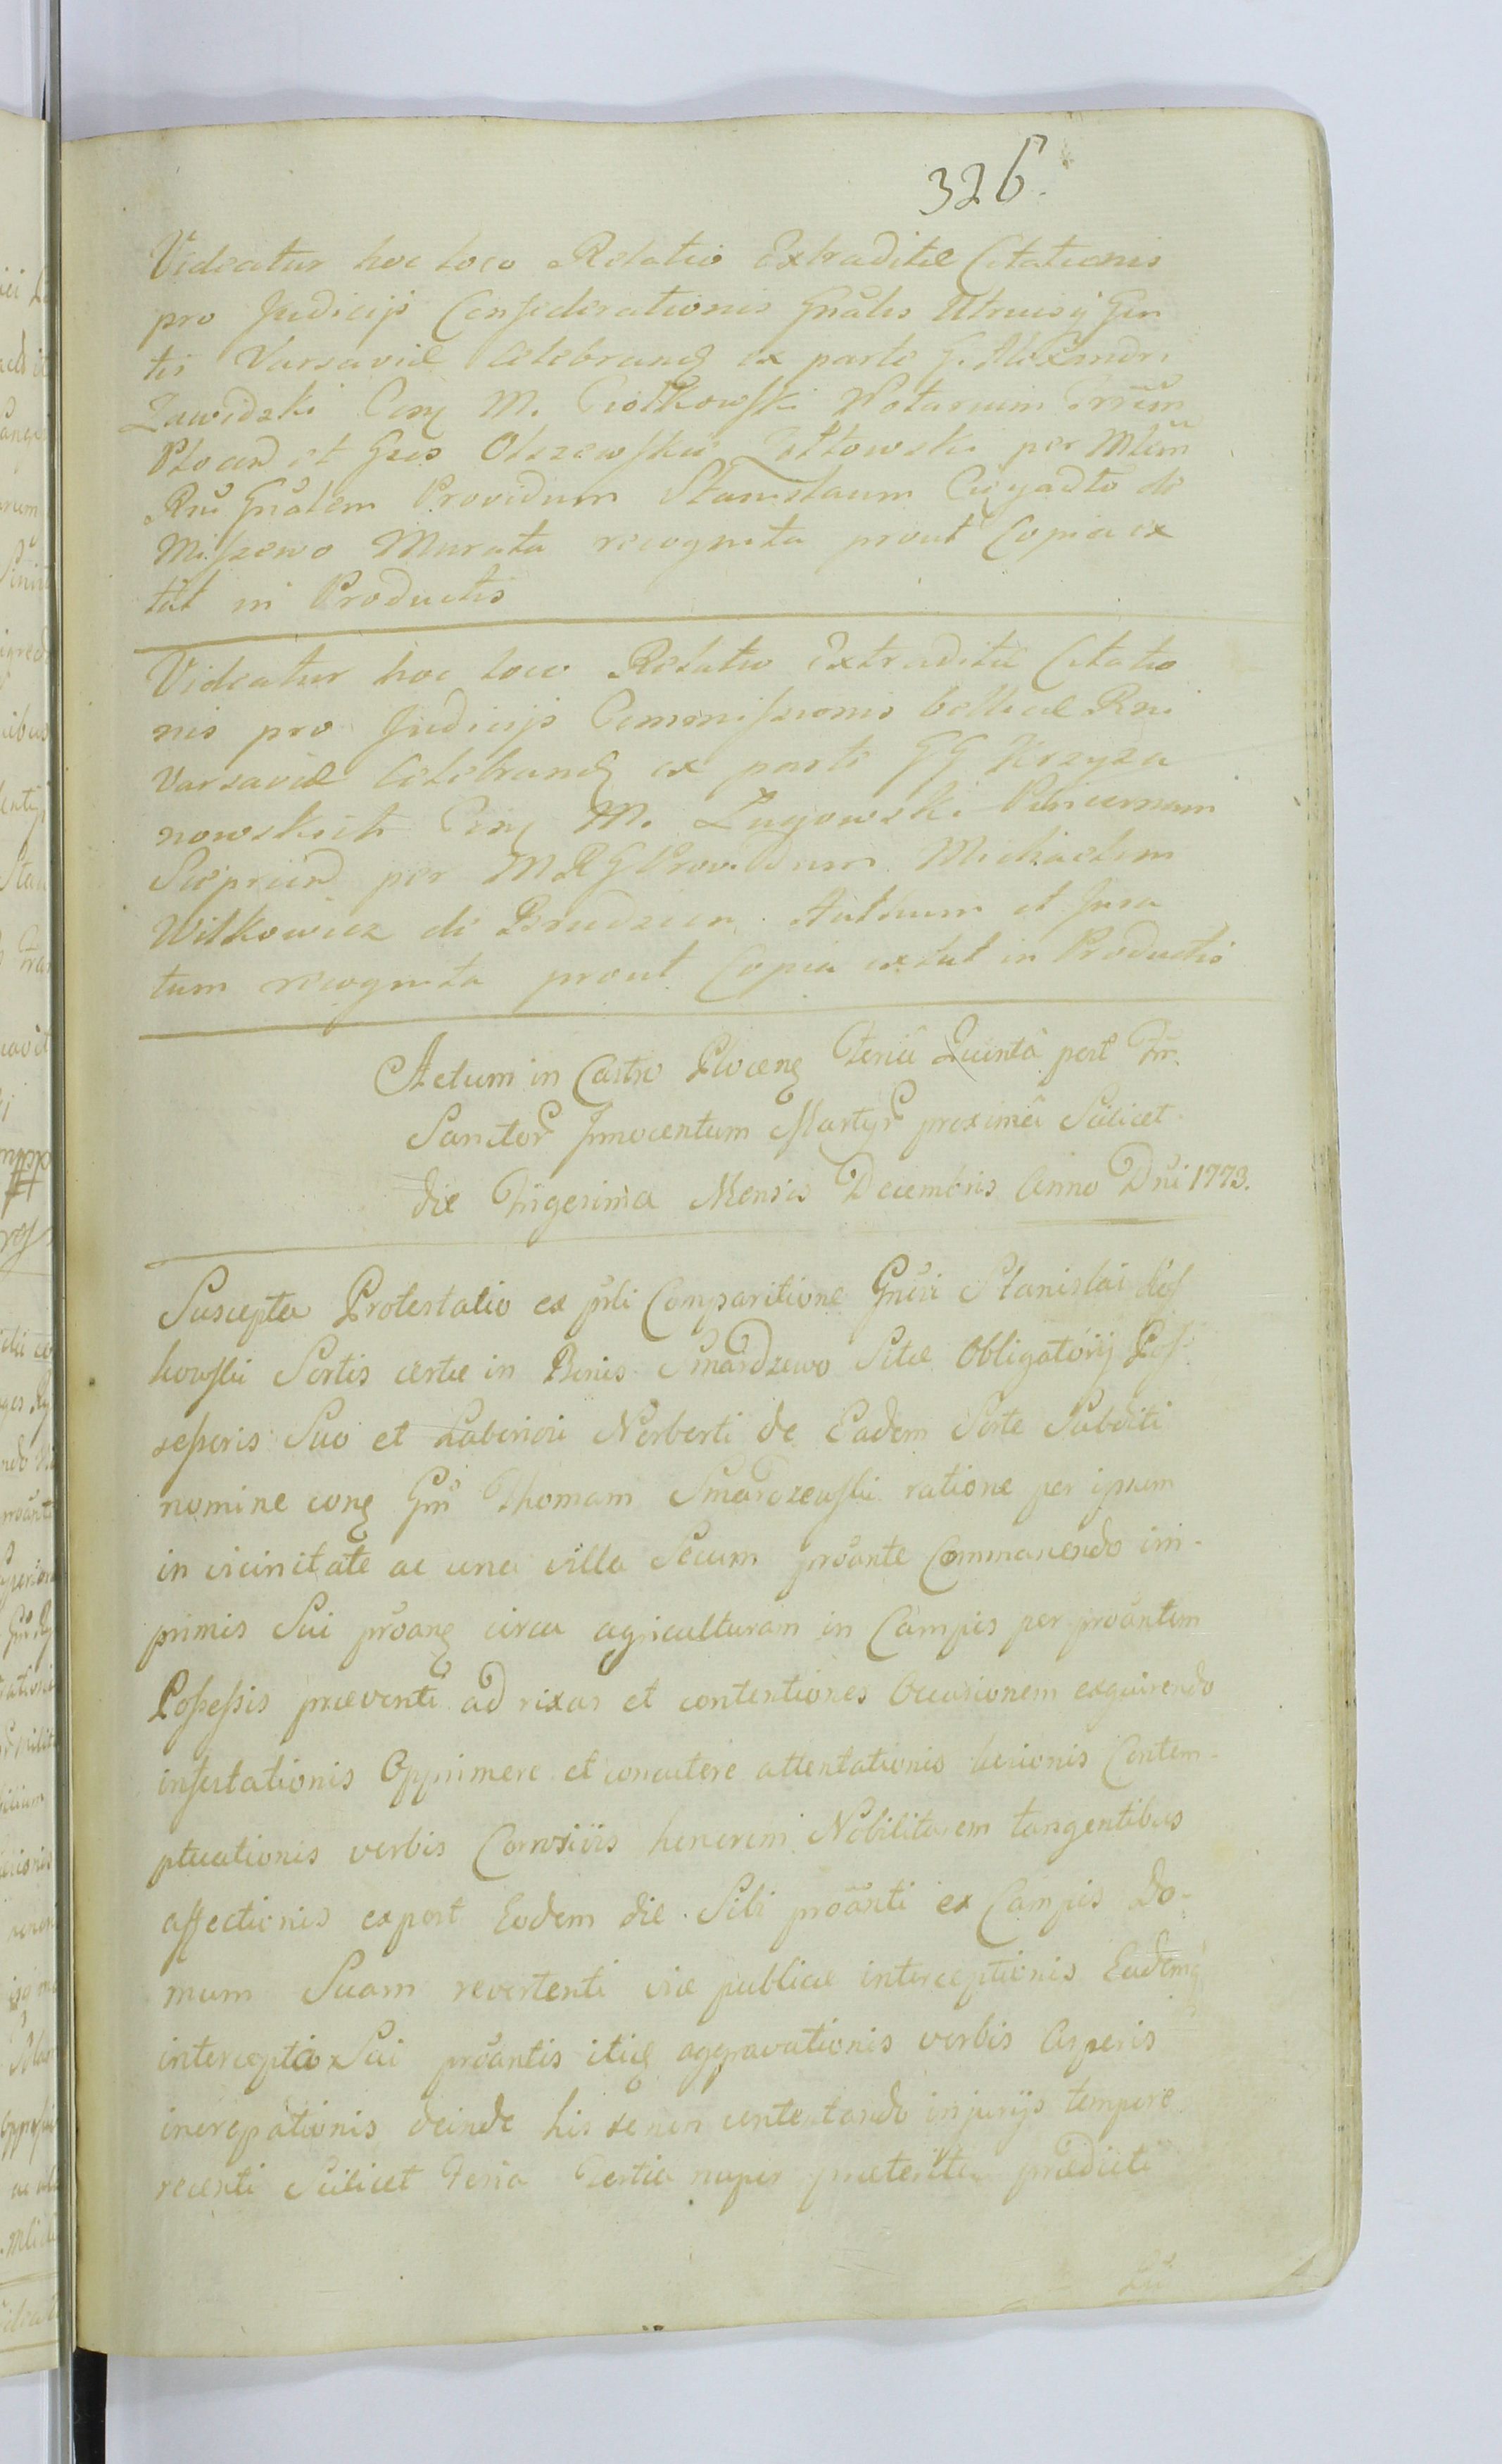 326.
Videatur hoc loco Relatio Extraditæ Citationis
pro Judicijs Confederationis Gnãlis Utriusq Gen
tis Varsaviæ celebrand ex parte G. Alexandri
Zawidzki Con M. Ciołkowski Notarium Trrem
Plocen et Gsos Olszewskie Żółtowski per Mlem
Rni Gnãlem Providum Stanislaum de
Miszewo Murata recognita prout Copia ex
tat in Productis
Videatur hoc loco Relatio Extraditæ Citatio
nis pro Judicijs Commissionis bellicæ Rni
Varsaviæ Celebrand ex parte GG Krzyża
nowskich Con M. Zugowski Pincernam
Sieprien per MRG Providum Michaelem
Witkowicz de Brudzen Authum et Jura
tum recognita prout Copia extat in Productis
Actum in Castro Plocen Feria Quinta post Fm.
Sanctor Innocentum Martyr proxima Scilicet
die Trigesima Mensis Decembris Anno Dni 1773.
Suscepta Protestatio ex prli Comparitione Gnsi Stanislai
kowski Sortis certæ in Bonis Smardzewo Sitæ Obligatorij Pos
sessoris Suo et Laboriosi Norberti de Eadem Sorte Subditi
nomine con Gm Thomam Smardzewski ratione per ipsum
in vicinitate ac una villa Secum proante Commanendo im-
primis Sui proan circa agriculturam in Campis per proantem
Possessis præventi ad rixas et contentiones Occasionem exquirendo
infestationis Opprimere et concutere attentationis læsionis Contem-
ptuationis verbis Corrosivis honorem Nobilitarem tangentibus
affectionis expost Eodem die Sibi proanti ex Campis Do-
mum Suam revertenti viæ publicæ interceptionis Eademq
intercepta Sui proantis aggravationis verbis Asperis
increpationis deinde his se non contentando injurijs tempore
recenti Scilicet Feria Tertia nuper præterita prædicti